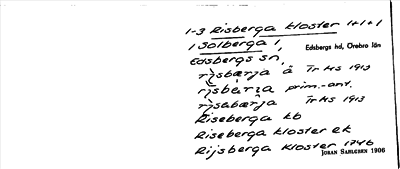 1-3 Risberga kloster 1+1+1
1 Solberga 1,
Edsbergs hd, Örebro län
Edsbergs sn,
rịsbærja å Tr Ms 1913
prim.-ant.
Tr Ms 1913
Riseberga kb
Riseberga kloster ek
Rijsberga kloster 1746
JOHAN SAHLGREN 1906